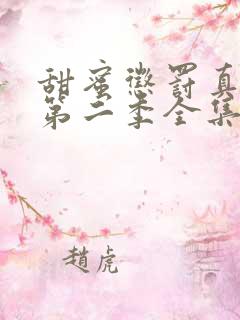 甜蜜懲罰真
第二季全集
趙虎